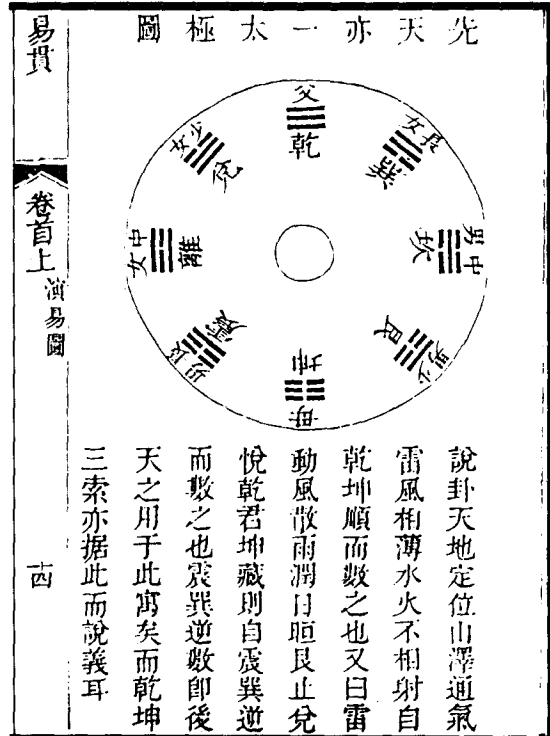 先天亦一太極圖
父
乾
長女
巽
中男
坎
少男
艮
母
坤
長男
震
中女
離
少女
兌
說卦天地定位山澤通氣
雷風相薄水火不相射自
乾坤順而數之也又曰雷
動風散雨潤日晅艮止兌
悅乾君坤藏則自震巽逆
而數之也震巽逆數即後
天之用于此寓矣而乾坤
三索亦据此而說義耳
易貫
卷首上
演易圖
十四